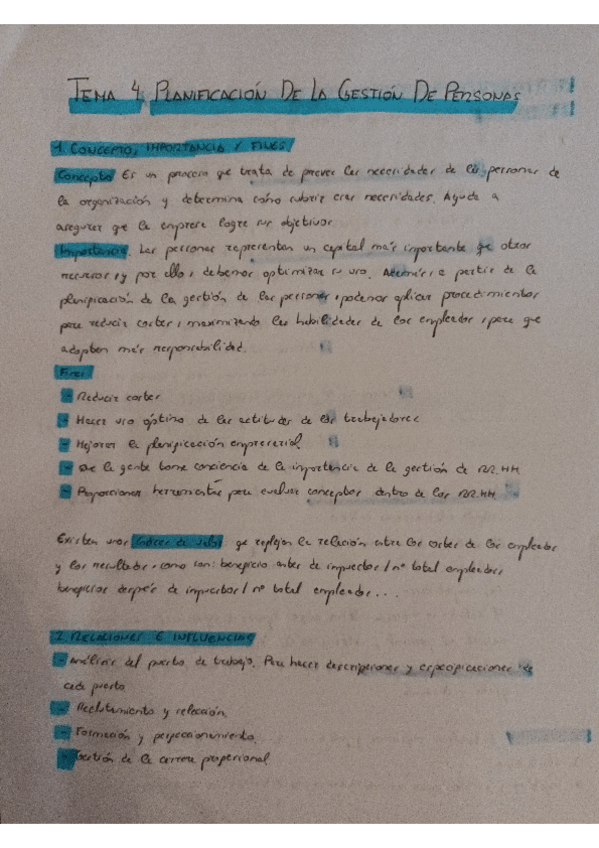 TEMA 4 PLANIFICACIÓN DE LA GESTIÓN DE PERSONAS
1. CONCEPTO, IMPORTANCIA Y FINES
Concepto Es un proceso que trata de prever las necesidades de las personas de
la organización y determina cómo cubrir esas necesidades. Ayuda a
asegurar que la empresa logre sus objetivos
Importancia. Las personas representan un capital más importante que otros
recursos, y por ello, debemos optimizar su uso. Además, a partir de la
planificación de la gestión de las personas, podemos aplicar procedimientos
para reducir costes, maximizando las habilidades de los empleados, para que
adopten más responsabilidad.
Fines
- Reducir costes
- Hacer uso óptimo de las actitudes de los trabajadores
- Mejorar la planificación empresarial
- Que la gente tome conciencia de la importancia de la gestión de RR.HH
- Proporcionar herramientas para evaluar conceptos dentro de los RR.HH
Existen unos índices de valor que reflejan la relación entre los costes de los empleados
y los resultados, como son: beneficio antes de impuestos / nº total empleados,
beneficios después de impuestos / nº total empleados...
2. RELACIONES E INFLUENCIAS
- Análisis del puesto de trabajo. Para hacer descripciones y especificaciones de
cada puesto
- Reclutamiento y selección
- Formación y perfeccionamiento.
- Gestión de la carrera profesional